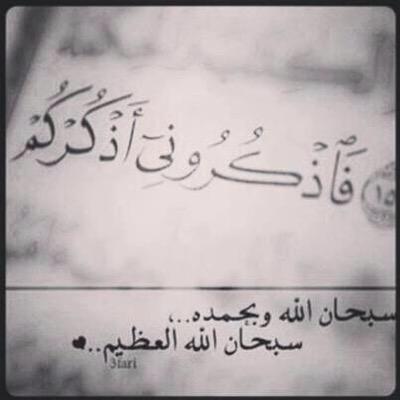 ١٥ فَٱذۡكُرُونِيٓ أَذۡكُرۡكُمۡ
سبحان الله وبحمده..،
سبحان الله العظيم..♥
3fari